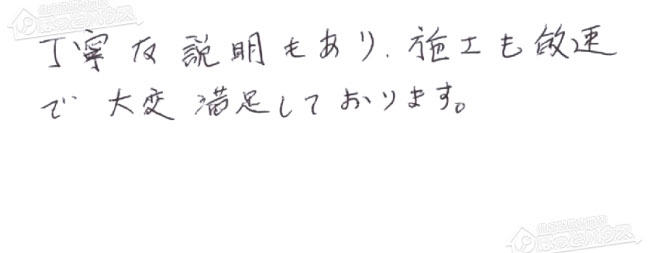 丁寧な説明もあり、施工も敏速
で大変満足しております。